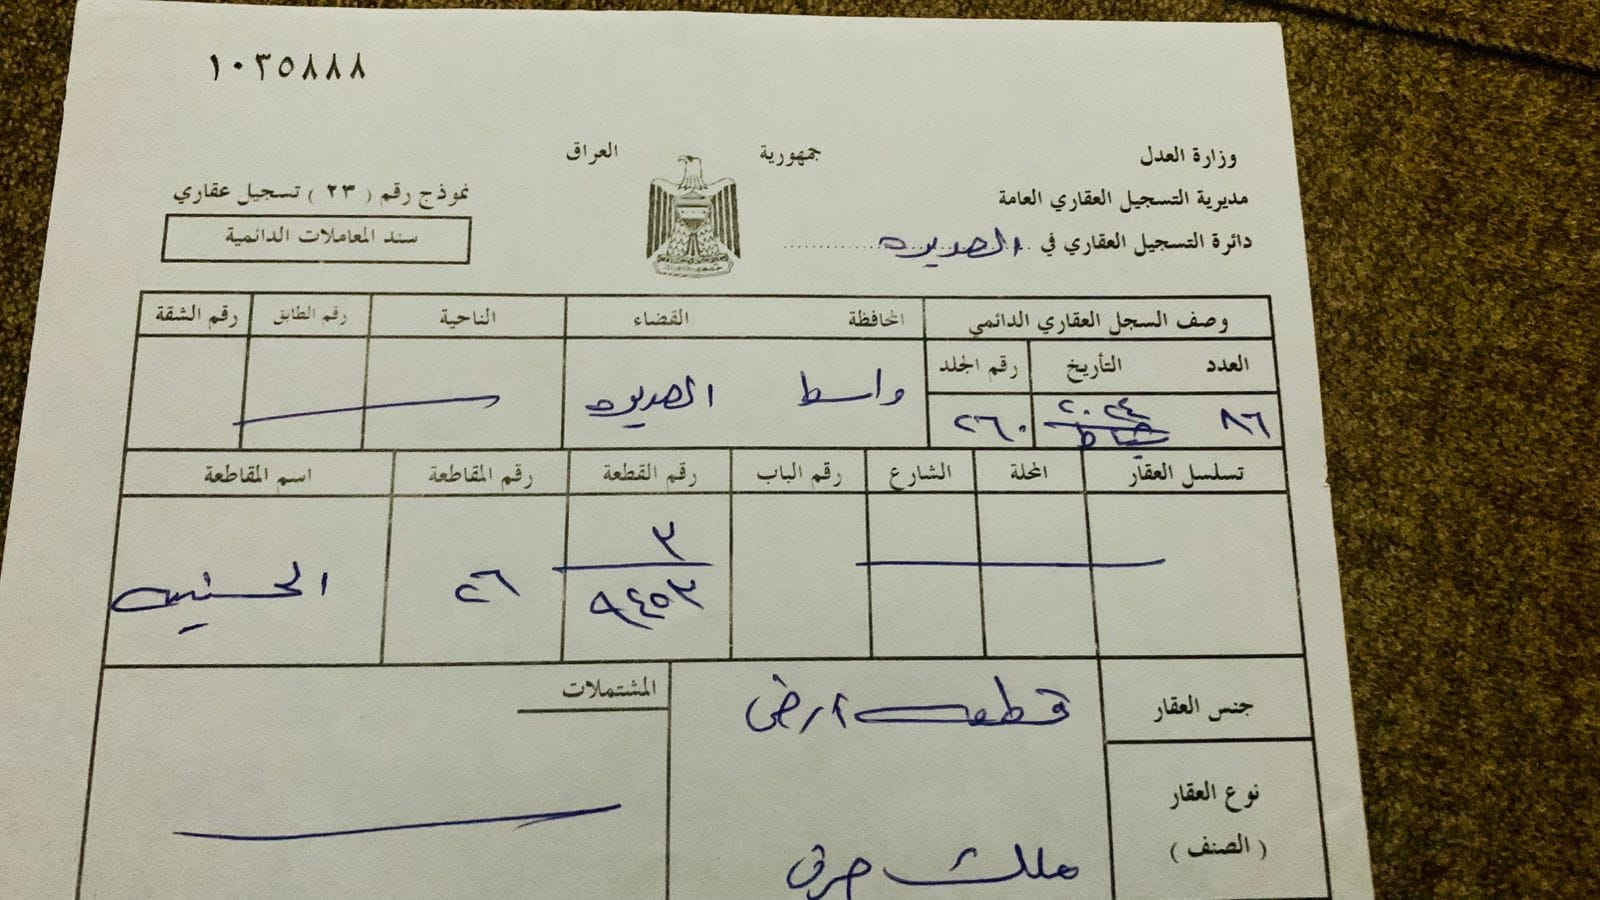 ١٠٣٥٨٨٨
جمهورية العراق
وزارة العدل
مديرية التسجيل العقاري العامة
دائرة التسجيل العقاري في الصويره
نموذج رقم ( ٢٣ ) تسجيل عقاري
سند المعاملات الدائمية
وصف السجل العقاري الدائمي المحافظة القضاء الناحية رقم الطابق رقم الشقة
العدد التأريخ رقم المجلد
٨٦ شباط ٢٠٢٤ ٢٦٠ واسط الصويره
تسلسل العقار المحلة الشارع رقم الباب رقم القطعة رقم المقاطعة اسم المقاطعة
٣
٩٤٥٣ ٢٦ الحسنيه
جنس العقار قطعه ارض المشتملات
نوع العقار
( الصنف ) ملك صرف